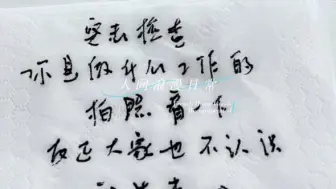 突击检查
你是做什么工作的
拍照看一下
反正大家也不认识